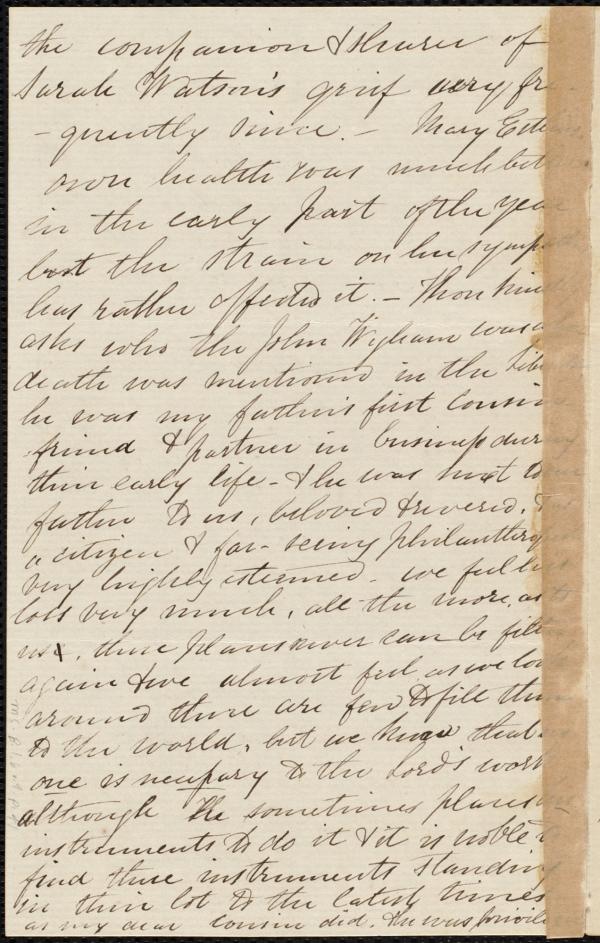 the companion & sharer of
Sarah Watson's grief very fre-
-quently since. - Mary Estlin's
own health was much bet
in the early part of the year
but the strain on her sympath
has rather affected it. - Thou kindly
asks who the John Wigham was
death was mentioned in the Lib
he was my father's first Cousin
friend & partner in business during
their early life - & he was next to
father to us, beloved & revered, &
a citizen & far-seeing philanthrop
very highly esteemed - we feel his
loss very much, all the more, as to
us, these places never can be filled
again & we almost feel as we look
around there are few to fill them
to the world, but we know that no
one is necessary to the Lord's work
although He sometimes places
instruments to do it & it is noble to
find these instruments standing
in their lot to the latest times
as my dear cousin did. He was